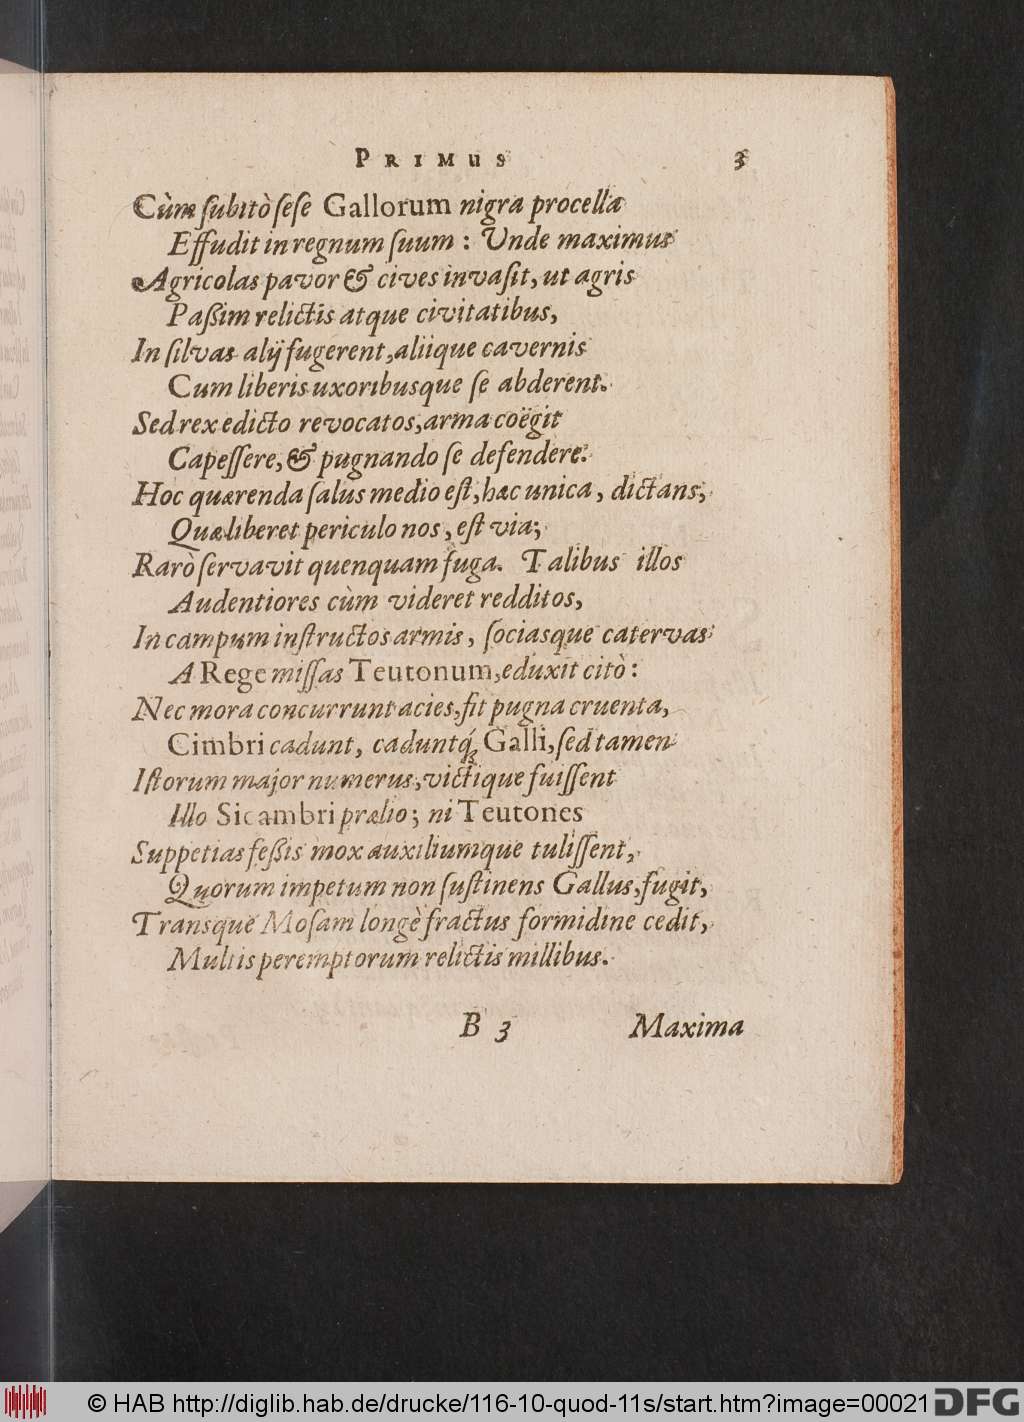 PRIMUS 3
Cùm subitò sese Gallorum nigra procella
Effudit in regnum suum: Unde maximus
Agricolas pavor & cives invasit, ut agris
Paßim relictis atque civitatibus,
In silvas alij fugerent, aliique cavernis
Cum liberis uxoribusque se abderent.
Sed rex edicto revocatos, arma coëgit
Capessere, & pugnando se defendere.
Hoc quærenda salus medio est, hæc unica, dictans,
Quæ liberet periculo nos, est via;
Rarò servavit quenquam fuga. Talibus illos
Audentiores cùm videret redditos,
In campum instructos armis, sociasque catervas
A Rege missas Teutonum, eduxit citò:
Nec mora concurrunt acies, fit pugna cruenta,
Cimbri cadunt, caduntq́; Galli, sed tamen
Istorum major numerus, victique fuissent
Illo Sicambri prælio; ni Teutones
Suppetias feßis mox auxiliumque tulissent,
Quorum impetum non sustinens Gallus, fugit,
Transque Mosam longè fractus formidine cedit,
Multis peremptorum relictis millibus.
B 3 Maxima
© HAB http://diglib.hab.de/drucke/116-10-quod-11s/start.htm?image=00021
DFG